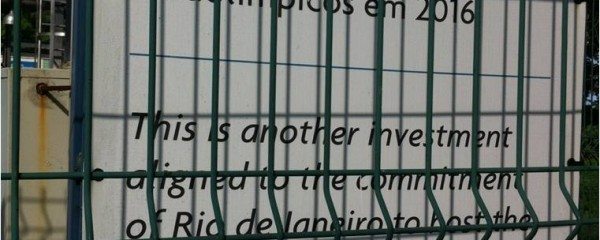 em 2016
This is another investment
aligned to the commitment
of Rio de Janeiro to host the